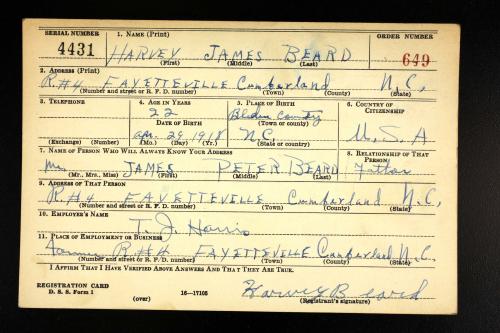 SERIAL NUMBER 1. NAME (Print) ORDER NUMBER
4431 HARVEY JAMES BEARD 649
(First) (Middle) (Last)
2. ADDRESS (Print)
R.#4 FAYETTEVILLE Cumberland N.C.
(Number and street or R. F. D. number) (Town) (County) (State)
3. TELEPHONE 4. AGE IN YEARS 5. PLACE OF BIRTH 6. COUNTRY OF CITIZENSHIP
22 Bladen County
DATE OF BIRTH (Town or county)
Apr. 29, 1918 N.C. U.S.A
(Exchange) (Number) (Mo.) (Day) (Yr.) (State or country)
7. NAME OF PERSON WHO WILL ALWAYS KNOW YOUR ADDRESS 8. RELATIONSHIP OF THAT PERSON
Mr. JAMES PETER BEARD Father
(Mr., Mrs., Miss) (First) (Middle) (Last)
9. ADDRESS OF THAT PERSON
R#4 FAYETTEVILLE Cumberland N.C,
(Number and street or R. F. D. number) (Town) (County) (State)
10. EMPLOYER'S NAME
T. J. Harris
11. PLACE OF EMPLOYMENT OR BUSINESS
R#4 FAYETTEVILLE Cumberland N.C.
(Number and street or R. F. D. number) (Town) (County) (State)
I AFFIRM THAT I HAVE VERIFIED ABOVE ANSWERS AND THAT THEY ARE TRUE.
REGISTRATION CARD
D. S. S. Form 1 (over) 16—17105
Harvey Beard
(Registrant's signature)